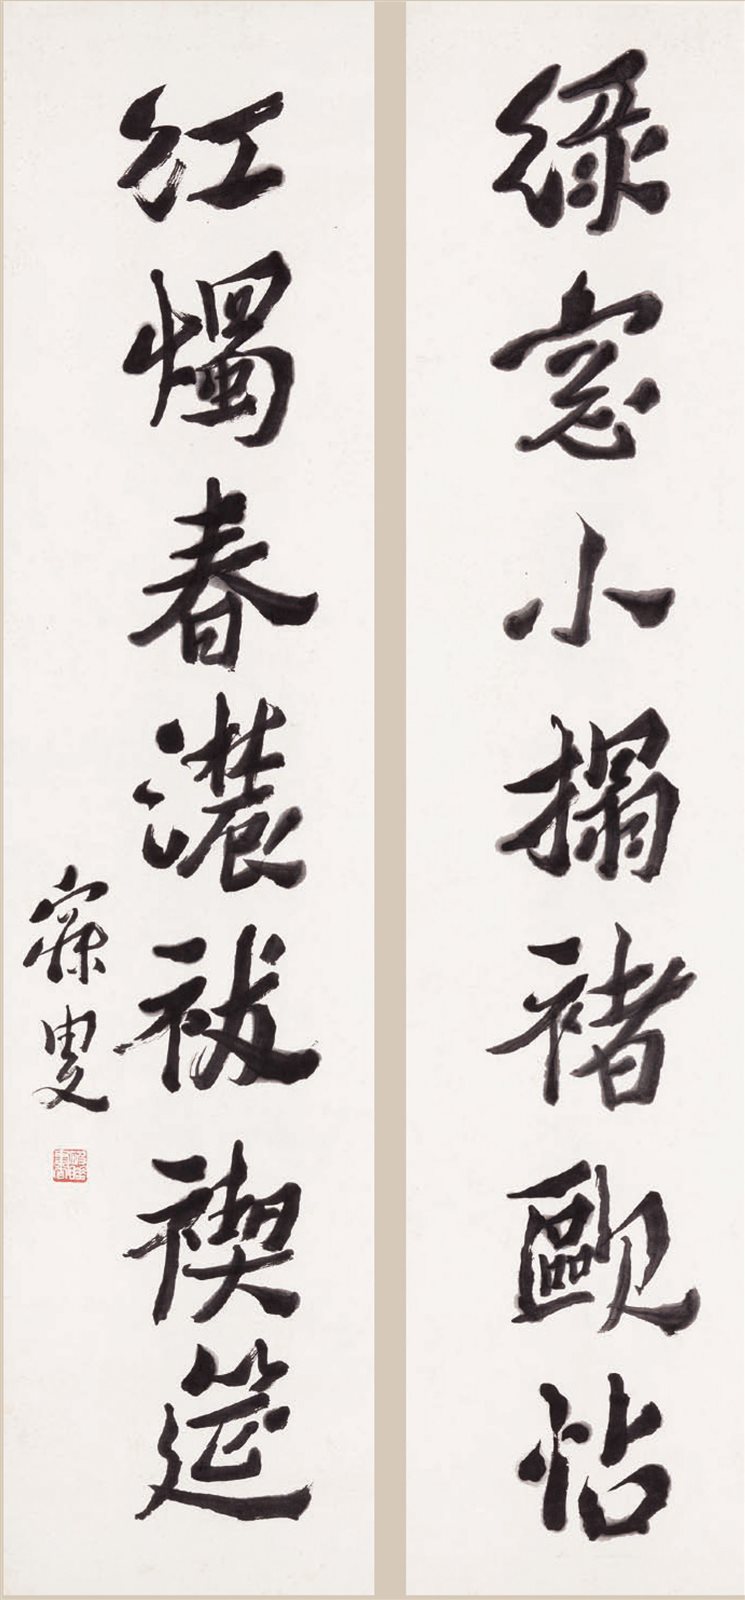 綠窓小搨褚歐帖
紅燭春濃祓禊筵
寐叟